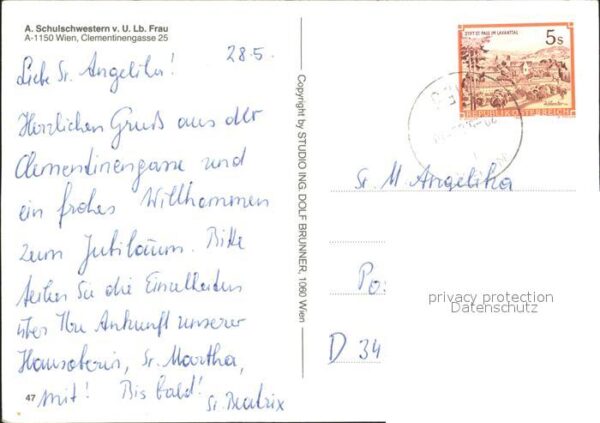 A. Schulschwestern v. U. Lb. Frau
A-1150 Wien, Clementinengasse 25
28.5.
Liebe Sr. Angelika!
Herzlichen Gruß aus der
Clementinengasse und
ein frohes Willkommen
zum Jubiläum. Bitte
teilen Sie die Einzelheiten
über Ihre Ankunft unserer
Hausoberin, Sr. Martha,
mit! Bis bald!
Sr. Beatrix
47
Copyright by STUDIO ING. DOLF BRUNNER, 1060 Wien
STIFT ST. PAUL IM LAVANTTAL
5s
REPUBLIK ÖSTERREICH
Sr. M. Angelika
Po:
privacy protection
Datenschutz
D 34